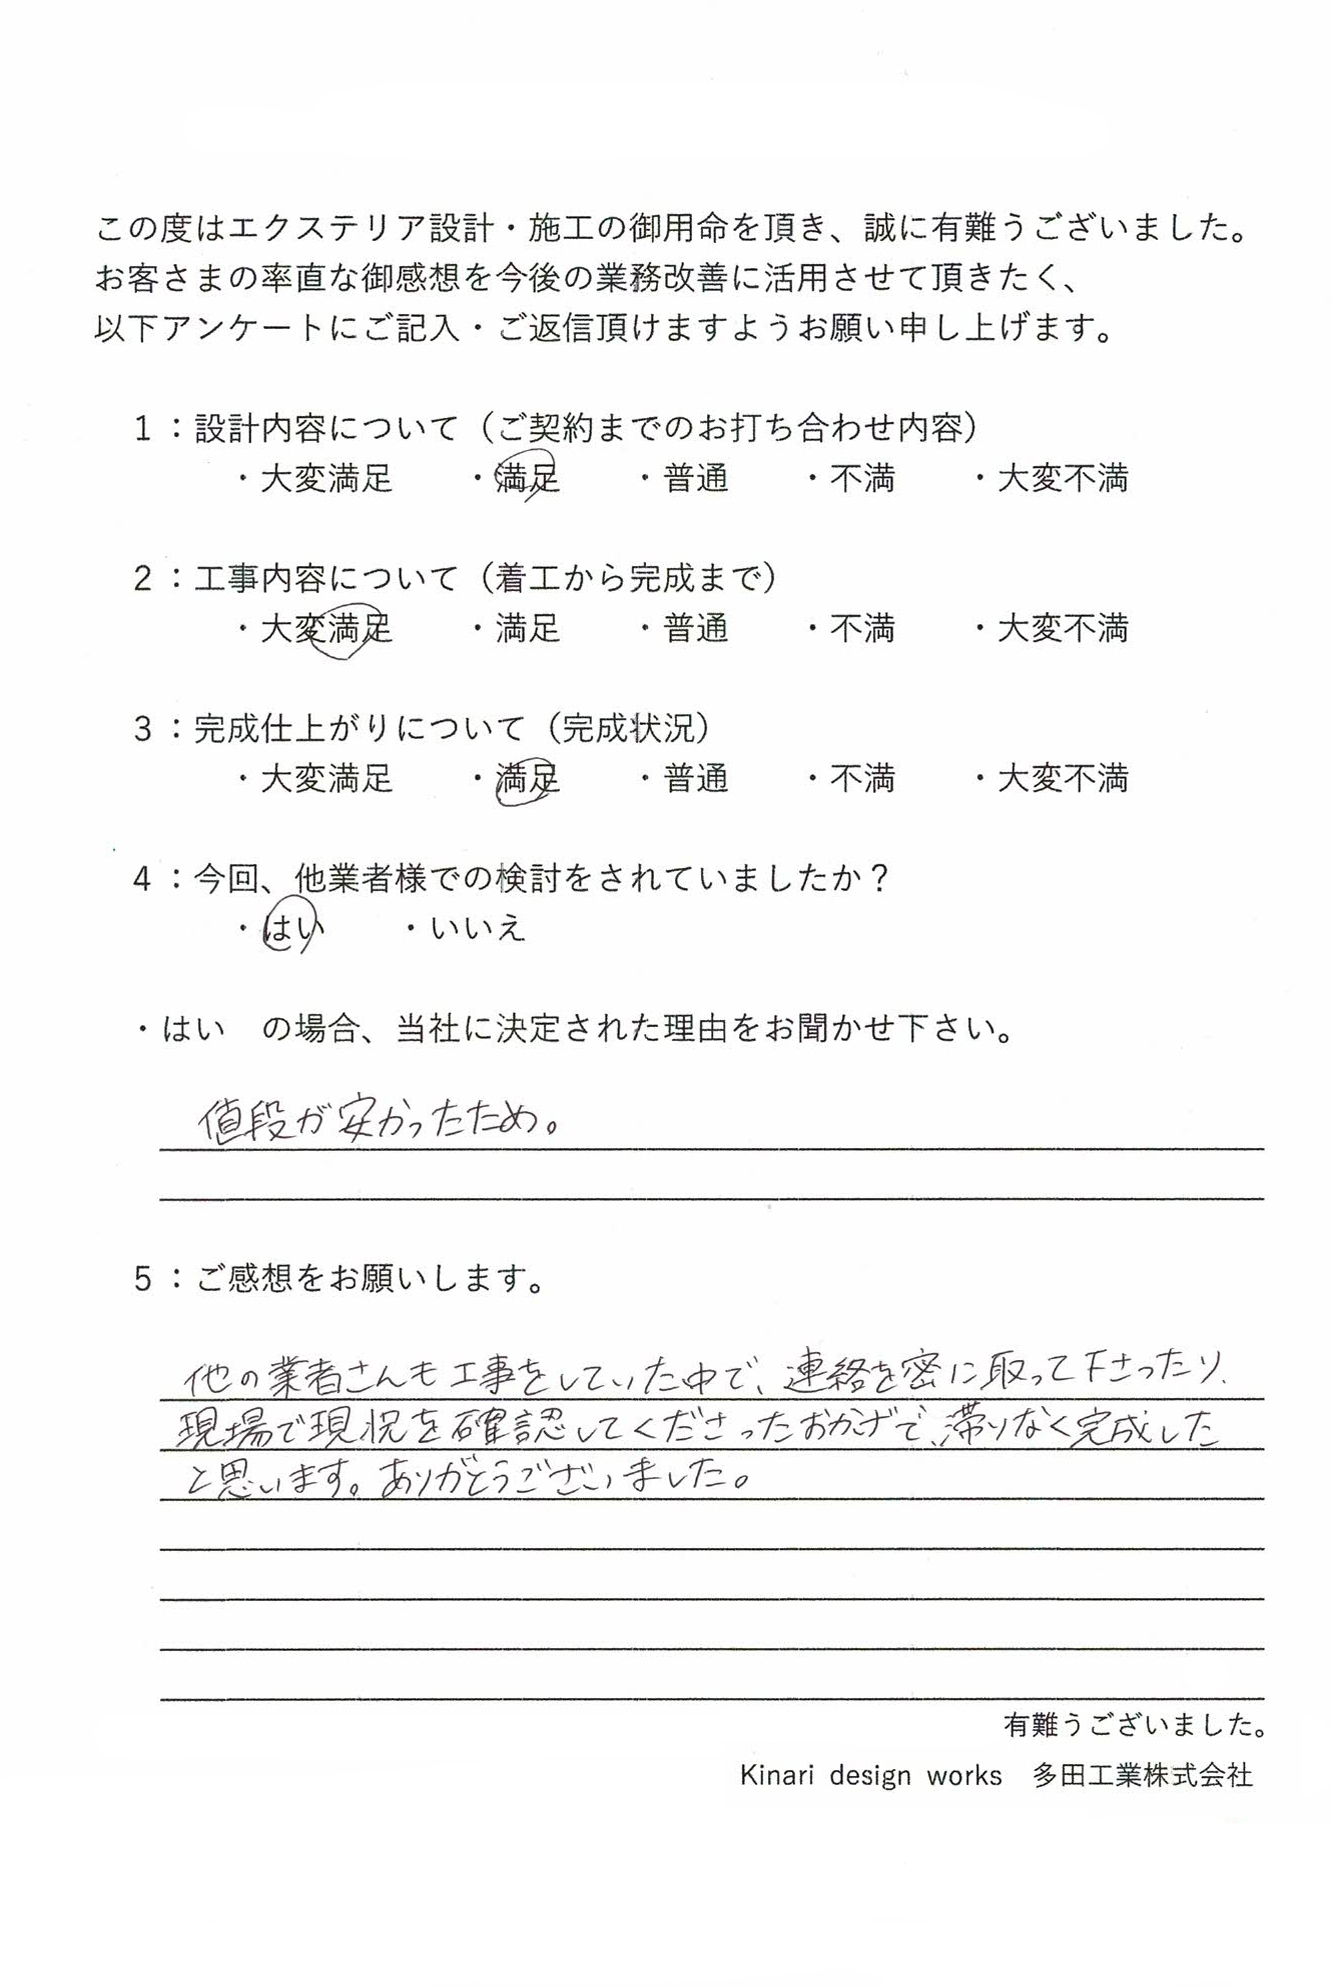 この度はエクステリア設計・施工の御用命を頂き、誠に有難うございました。
お客さまの率直な御感想を今後の業務改善に活用させて頂きたく、
以下アンケートにご記入・ご返信頂けますようお願い申し上げます。
1：設計内容について（ご契約までのお打ち合わせ内容）
・大変満足　・満足　・普通　・不満　・大変不満
2：工事内容について（着工から完成まで）
・大変満足　・満足　・普通　・不満　・大変不満
3：完成仕上がりについて（完成状況）
・大変満足　・満足　・普通　・不満　・大変不満
4：今回、他業者様での検討をされていましたか？
・はい　・いいえ
・はい　の場合、当社に決定された理由をお聞かせ下さい。
値段が安かったため。
5：ご感想をお願いします。
他の業者さんも工事をしていた中で、連絡を密に取って下さったり、
現場で現況を確認してくださったおかげで、滞りなく完成した
と思います。ありがとうございました。
有難うございました。
Kinari design works　多田工業株式会社